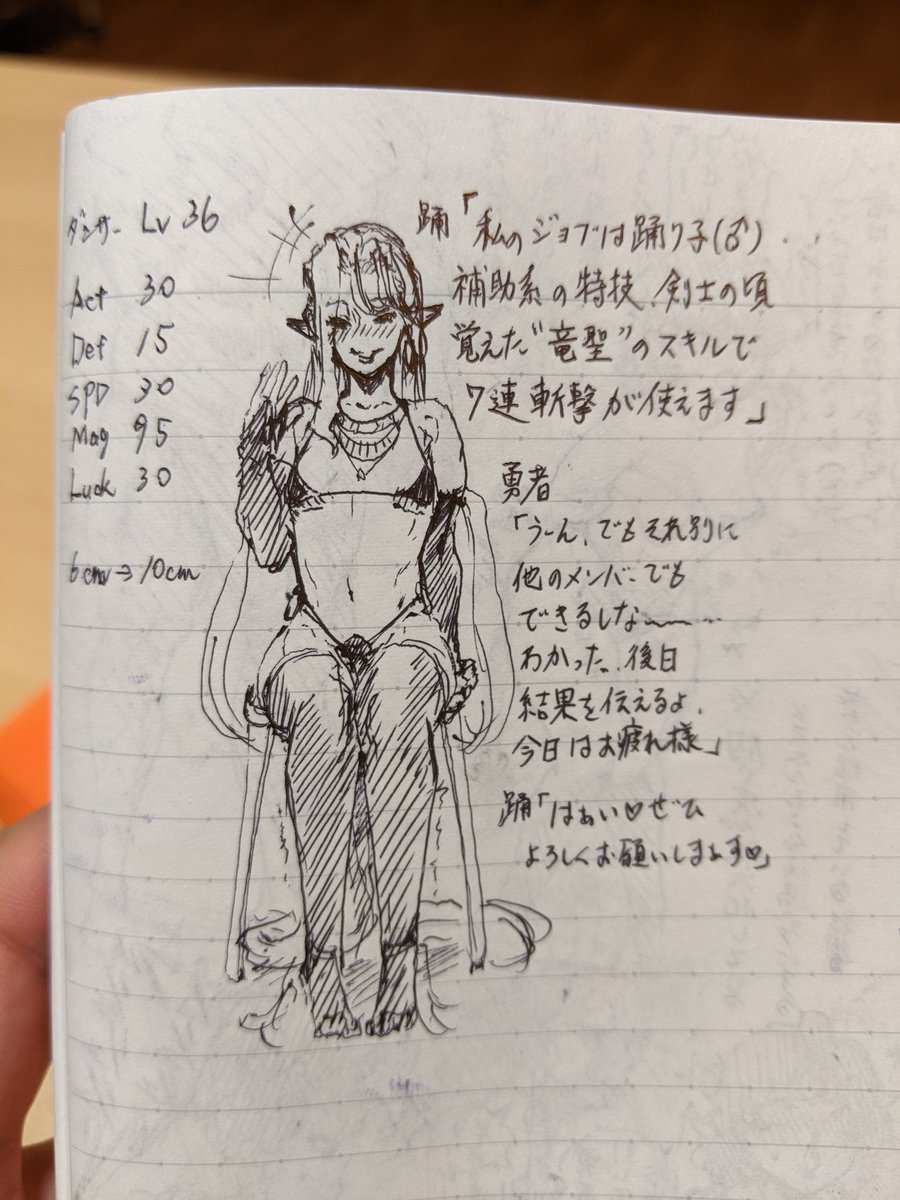 ダンサー Lv 36
Act 30
Def 15
SPD 30
Mag 95
Luck 30
6cm→10cm
踊「私のジョブは踊り子(♂)...
補助系の特技、剣士の頃
覚えた"竜聖"のスキルで
7連斬撃が使えます」
勇者
「うーん、でもそれ別に
他のメンバーでも
できるしな〜〜…
わかった、後日
結果を伝えるよ、
今日はお疲れ様」
踊「はぁい♡ぜひ
よろしくお願いしまぁす♡」